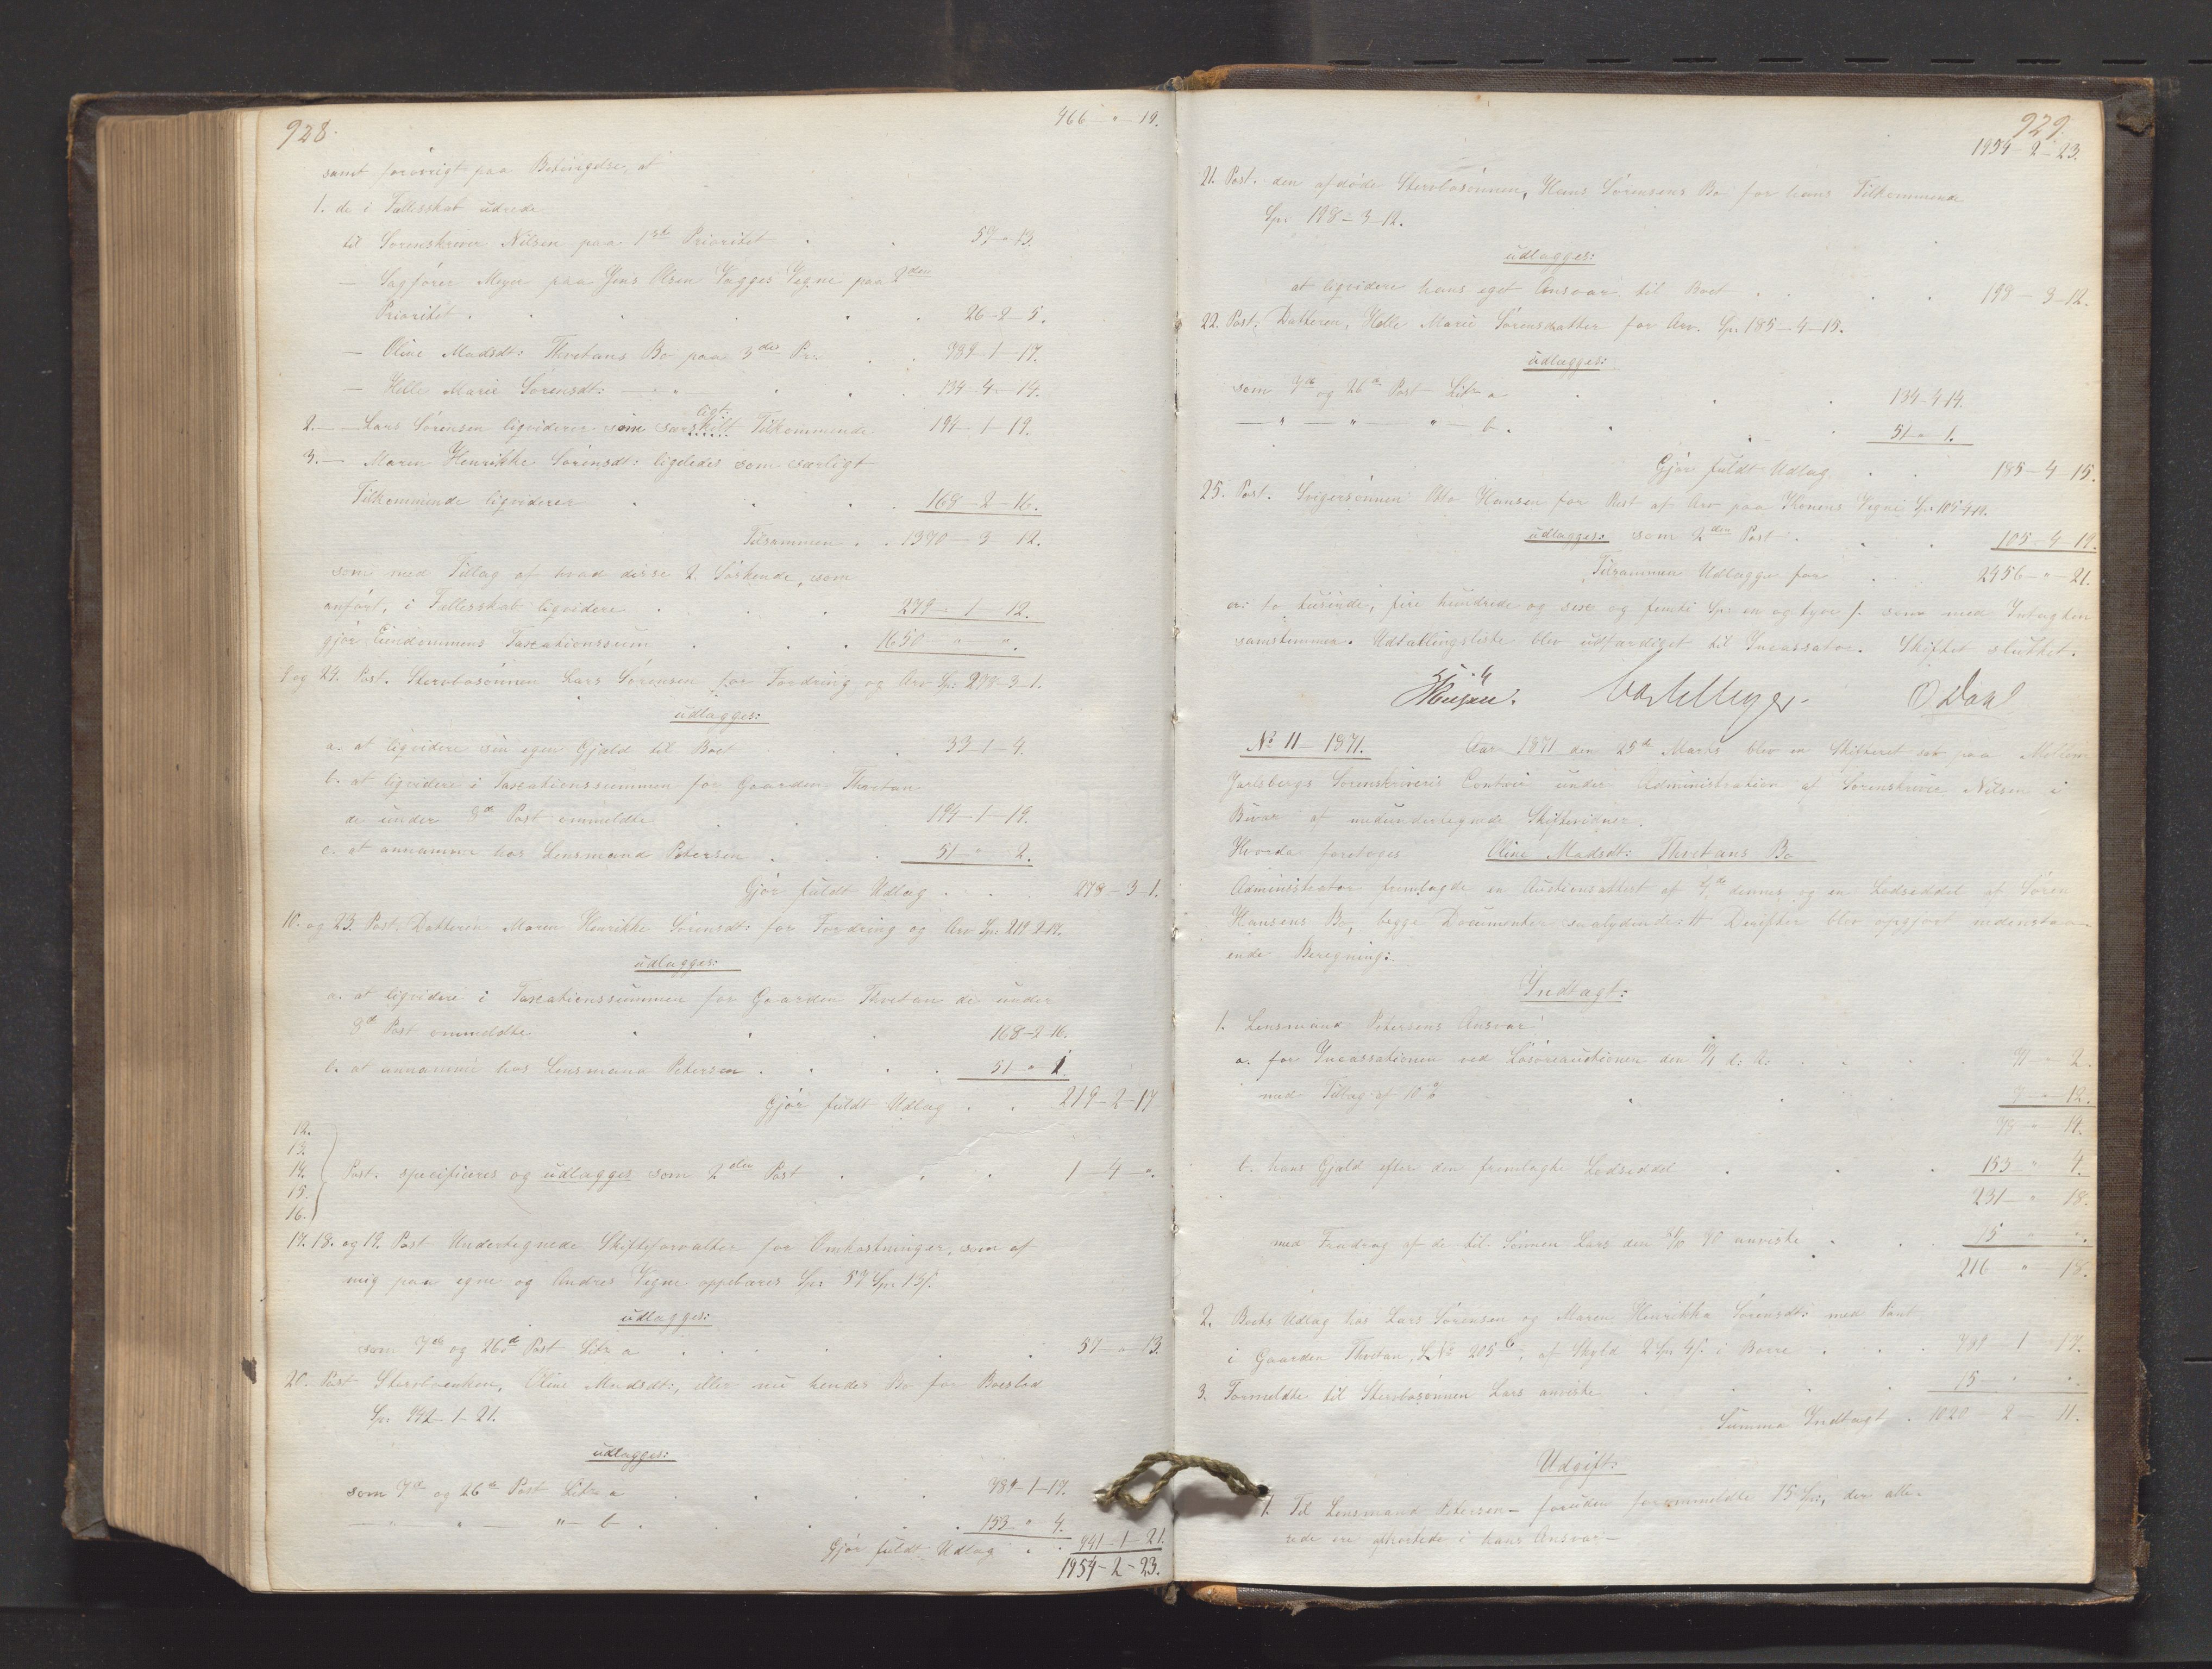 928.
samt forövrigt paa Betingelse, at
1. de i Fællesskab udrede
til Sorenskriver Nilsen paa 1ste Prioritet . . 57 - " - 13.
— Sagförer Meyer paa Jens Olsen Vegne paa 2den
Prioritet . . . . . 26 - 2 - 5.
— Oline Madsdt: Thvetans Bo paa 3die Pr: . . 789 - 1 - 17.
— Helle Marie Sörensdt: — " — . . 134 - 4 - 14.
ligt:
2. — Lars Sörensen ligviderer som særskilt Tilkommende 194 - 1 - 19.
3. — Maren Henrikke Sörensdt: ligeledes som særligt
Tilkommende ligviderer . . . . 168 - 2 - 16.
Tilsammen . . 1370 - 3 - 12.
som med Tillæg af hvad disse 2 Söskende, som
anfört, i Fællesskab ligvidere . . . 279 - 1 - 12.
gjör Eiendommens Taxationssum . . . 1650 " ".
og 24. Post. Sterbosönnen Lars Sörensen for Fordring og Arv Sp: 278-3-1.
udlægges:
a. at ligvidere sin egen Gjæld til Boet . . 33 - 1 - 4.
b. at ligvidere i Taxationssummen for Gaarden Thvetan
de under 8de Post ommeldte . . 194 - 1 - 19.
c. at annamme hos Lensmand Petersen . . . 51 " 2.
Gjör fuldt Udlæg . . . 278 - 3 - 1.
10. og 23. Post. Datteren Maren Henrikke Sörensdt: for Fordring og Arv Sp: 219-2-17.
udlægges:
a. at ligvidere i Taxationssummen for Gaarden Thvetan de under
8de Post ommeldte . . . 168 - 2 - 16.
b. at annamme hos Lensmand Petersen . . . . 51 - " 1.
Gjör fuldt Udlæg . . 219 - 2 - 17
12.
13.
14. Post. specificeres og udlægges som 2den Post . . . 1 - 4 - ".
15.
16.
17. 18. og 19. Post Undertegnede Skifteforvalter for Omkostninger, som af
mig paa egne og Andres Vegne oppebæres Sp: 57 Sp: 13 s.
udlægges:
som 7de og 26de Post Litr a . . . . . 57 - " - 13.
20. Post Sterboenken, Oline Madsdt:, eller nu hendes Bo for Boeslod
Sp: 942 - 1 - 21.
udlægges:
som 7de og 26de Post Litr a . . . . 789 - 1 - 17.
— " — " — " — b . . . . 153 " 4.
Gjör fuldt Udlæg . . 942 - 1 - 21.
1954 - 2 - 23.
929.
1954 - 2 - 23.
21. Post. den afdöde Sterbosönnen, Hans Sörensens Bo for hans Tilkommende
Sp: 198 - 3 - 12.
udlægges:
at ligvidere hans eget Ansvar til Boet . . . . 198 - 3 - 12.
22. Post. Datteren, Helle Marie Sörensdatter for Arv. Sp: 185 - 4 - 15.
udlægges:
som 7de og 26de Post Litr a . . . 134 - 4 - 14.
— " — " — " — b . . . . 51 " 1.
Gjör fuldt Udlæg . . 185 - 4 - 15.
25. Post. Svigersönnen Hansen for Rest af Arv paa Konens Vegne Sp: 105-4-19.
udlægges: som 2den Post . . . 105 - 4 - 19.
Tilsammen Udlægge for . . . 2456 - " - 21.
er: to tusinde, fire hundrede og sex og femti Sp: en og tyve s. som med Indtægten
samstemmer. Udtællingsliste blev udfærdiget til Incassator. Skiftet sluttet.
Nilsen. O Dahl
No 11 - 1871. Aar 1871 den 25de Marts blev en Skifteret sat paa Mellem
Jarlsbergs Sorenskriveries Contoir under Administration af Sorenskriver Nilsen i
Bivær af medundertegnede Skiftevidner.
Hvorda foretoges Oline Madsdt: Thvetans Bo
Administrator fremlagde en Auctionsattest af dennes og en Lodseddel af Sören
Hansens Bo, begge Documenter saalydende: # Derefter blev opgjort nedenstaa-
ende Beregning:
Indtægt:
1. Lensmand Petersens Ansvar:
a. for Incassationen ved Lösöreauctionen den . . . . 71 " 2.
med Tillæg af 10 % . . . 7 " 12.
78 " 14.
b. hans Gjæld efter den fremlagte Lodseddel . . . 153 " 4.
231 " 18.
med Fradrag af de til Sönnen Lars den 70 anviste . . . 15 " ".
216 " 18.
2. Boets Udlæg hos Lars Sörensen og Maren Henrikke Sörensdt: med Pant
i Gaarden Thvetan, L No 205 b, af Skyld 2 Sp: 4 s. i Borre . . . . 789 1 17.
3. Formeldte til Sterbosönnen Lars anviste . . . . 15 " ".
Summa Indtægt . 1020 2 11.
Udgift:
1. Til Lensmand Petersen - foruden forommeldte 15 Sp:, der alle-
rede ere afkortede i hans Ansvar -